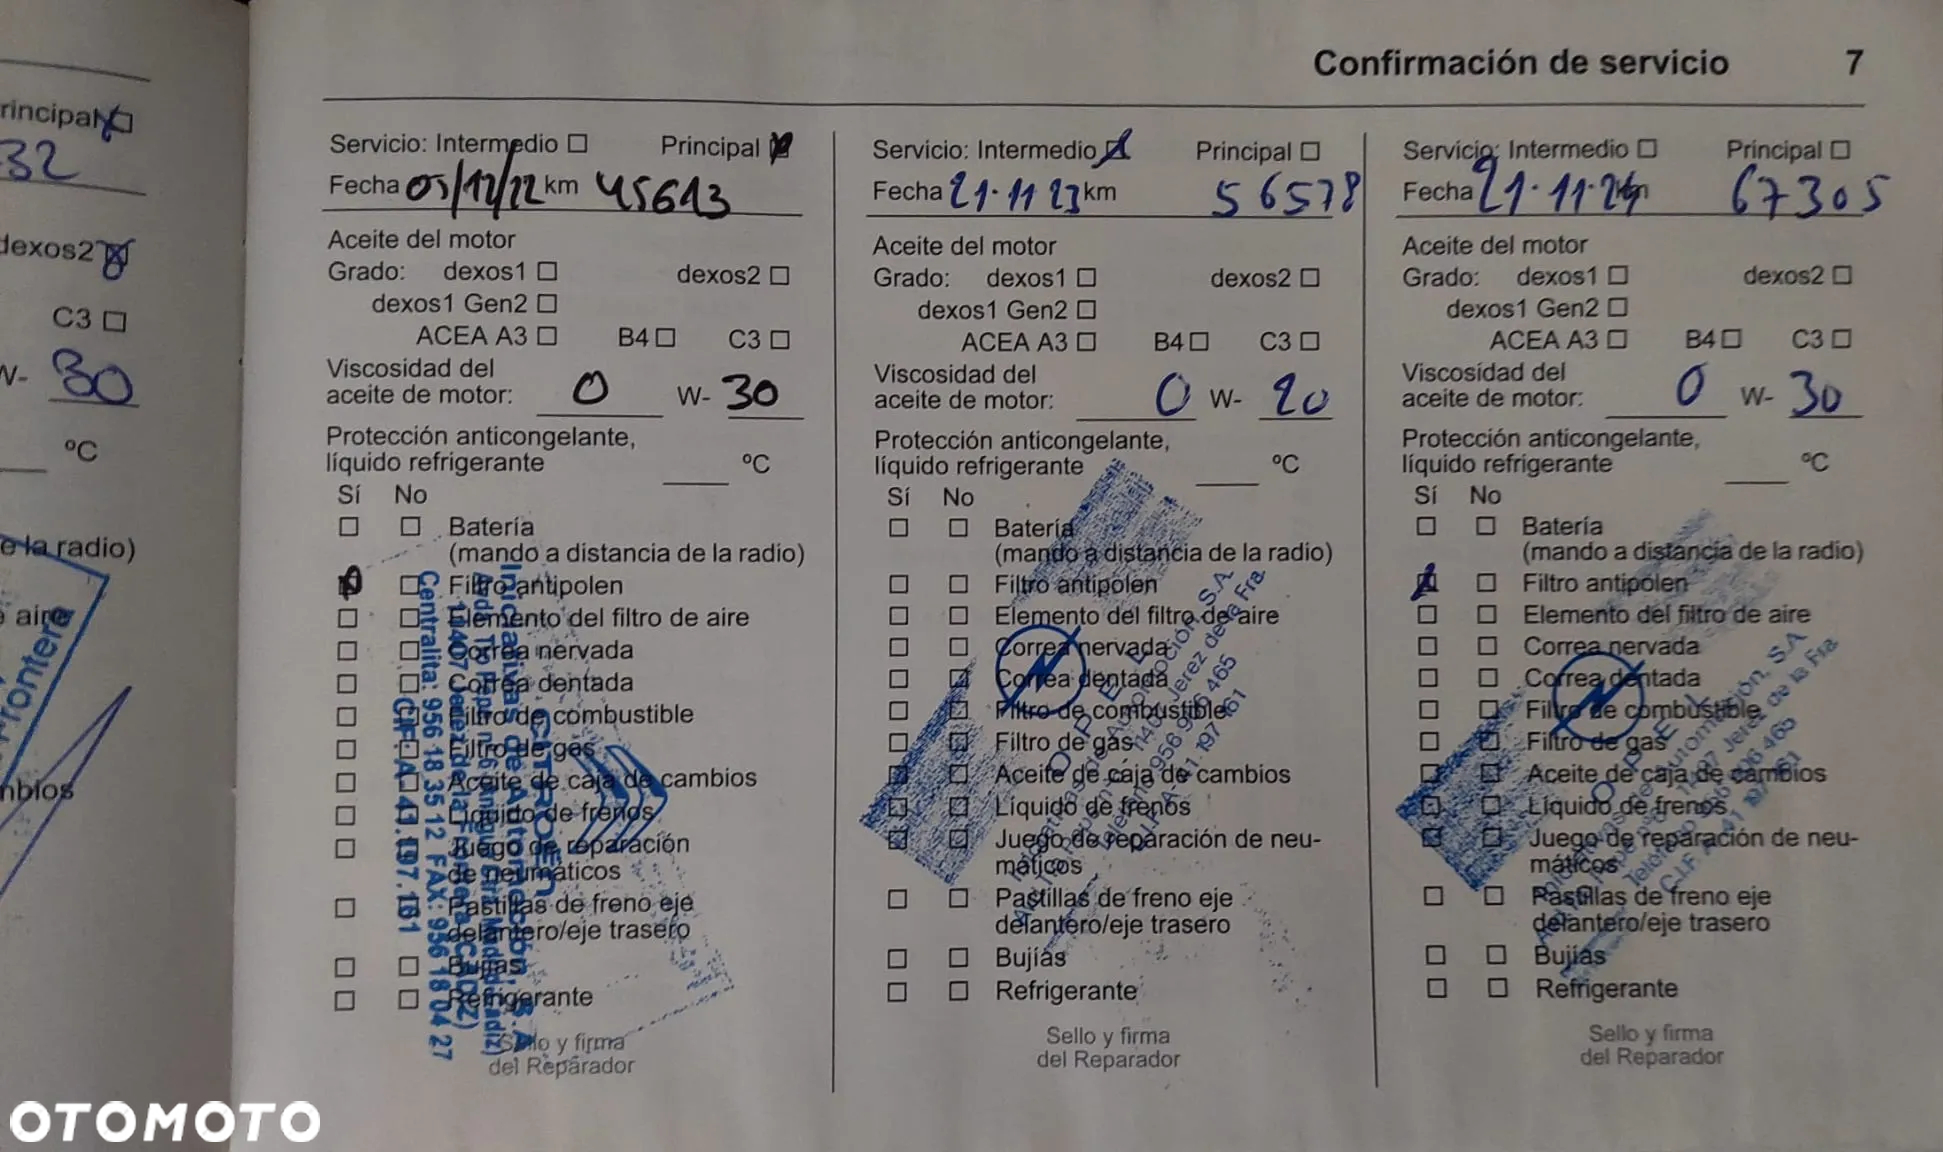 rincipal
32
dexos2
C3
W- 30
ºC
e la radio)
aire
rontera
mbios
Confirmación de servicio 7
Servicio: Intermedio Principal
Fecha 05/12/22 km 45613
Aceite del motor
Grado: dexos1 dexos2
dexos1 Gen2
ACEA A3 B4 C3
Viscosidad del
aceite de motor: 0 W- 30
Protección anticongelante,
líquido refrigerante ºC
Sí No
Batería
(mando a distancia de la radio)
Filtro antipolen
Elemento del filtro de aire
Correa nervada
Correa dentada
Filtro de combustible
Filtro de gas
Aceite de caja de cambios
Líquido de frenos
Juego de reparación
de neumáticos
Pastillas de freno eje
delantero/eje trasero
Bujías
Refrigerante
Sello y firma
del Reparador
CITROËN
Iniciativas de
Centralita: 956 18 35 12 FAX: 956 18 04 27
Servicio: Intermedio Principal
Fecha 21·11 23 km 56578
Aceite del motor
Grado: dexos1 dexos2
dexos1 Gen2
ACEA A3 B4 C3
Viscosidad del
aceite de motor: 0 W- 20
Protección anticongelante,
líquido refrigerante ºC
Sí No
Batería
(mando a distancia de la radio)
Filtro antipolen
Elemento del filtro de aire
Correa nervada
Correa dentada
Filtro de combustible
Filtro de gas
Aceite de caja de cambios
Líquido de frenos
Juego de reparación de neu-
máticos
Pastillas de freno eje
delantero/eje trasero
Bujías
Refrigerante
Sello y firma
del Reparador
OPEL
Automoción, S.A.
Jerez de la Fra
956 906 465
Servicio: Intermedio Principal
Fecha 21·11·24 km 67305
Aceite del motor
Grado: dexos1 dexos2
dexos1 Gen2
ACEA A3 B4 C3
Viscosidad del
aceite de motor: 0 W- 30
Protección anticongelante,
líquido refrigerante ºC
Sí No
Batería
(mando a distancia de la radio)
Filtro antipolen
Elemento del filtro de aire
Correa nervada
Correa dentada
Filtro de combustible
Filtro de gas
Aceite de caja de cambios
Líquido de frenos
Juego de reparación de neu-
máticos
Pastillas de freno eje
delantero/eje trasero
Bujías
Refrigerante
Sello y firma
del Reparador
OPEL
Automoción, S.A
Jerez de la Fra
OTOMOTO